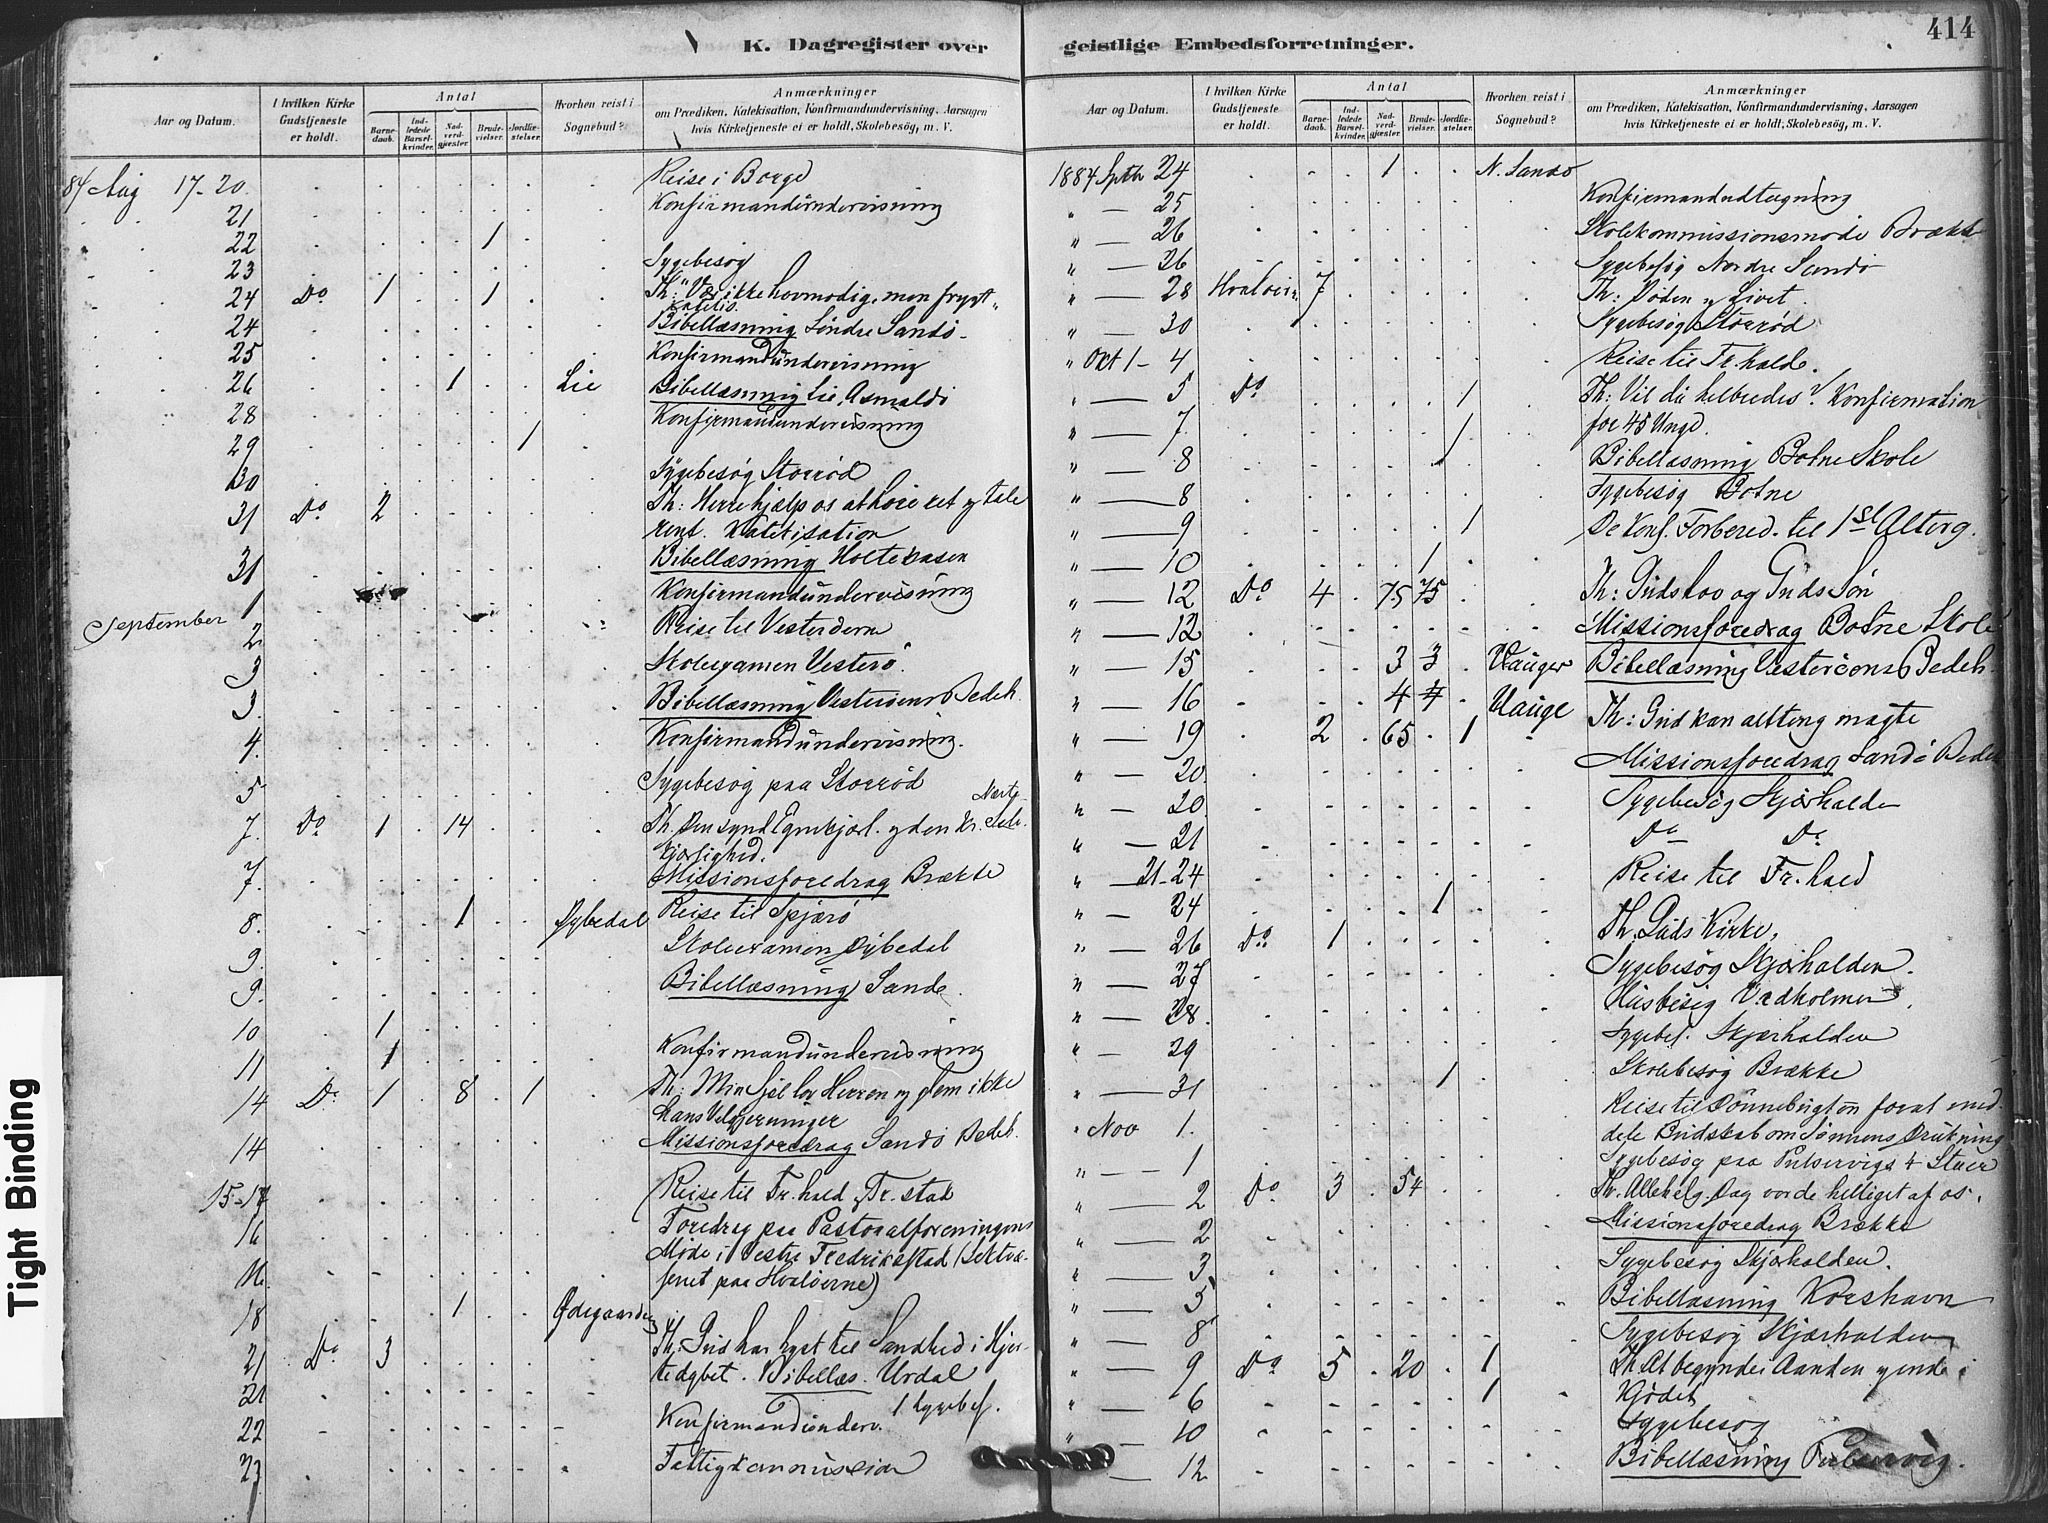 K. Dagregister over
Aar og Datum.
I hvilken Kirke Gudstjeneste er holdt.
Antal
Barnedaab.
Indledede Barselkvinder.
Nadverdgjæster.
Brudevielser.
Jordfæstelser.
Hvorhen reist i Sognebud?
Anmærkninger
om Prædiken, Katekisation, Konfirmandundervisning. Aarsagen
hvis Kirketjeneste ei er holdt, Skolebesøg, m. V.
84 Aug 17-20 Reise i Borge
21 Konfirmandundervisning
22 1
23 Sygebesøg
24 Do 1 1 Th: "Vær ikke hovmodig, men frygt"
Katekis.
24 Bibellæsning Søndre Sandø
25 Konfirmandundervisning
26 1 Lie Bibellæsning Lie, Asmalø
28 Konfirmandundervisning
29 1
30 Sygebesøg Storrød
31 Do 2 Th: Herre hjælp os at høre ret og tale
rent. Katekisation
31 Bibellæsning Holtekasen
September 1 Konfirmandundervisning
2 Reise til Vesterøerne
3 Skoleexamen Vesterø
3 Bibellæsning Vesterøens Bedeh.
4 Konfirmandundervisning.
5 Sygebesøg paa Storrød
7. Do 1 14 Th. Den synd. Egenkjærl. og den Kr. Næste-
kjærlighed.
7. Missionsforedrag Brække
8. 1 Dybedal Reise til Spjærø
9. Skoleexamen Dybedal
9. Bibellæsning Sande.
10 1
11 1 Konfirmandundervisning
14 Do 1 8 1 Th: Min Sjæl lov Herren og glem ikke
hans Velgjerninger
14 Missionsforedrag Sandø Bedeh.
15-17 Reise til Fr.hald, Fr.stad
16 Foredrag paa Pastoralforeningens
Møde i Vestre Fredrikstad
paa Hvaløerne)
18 1 Ødegaarden
21 Do 3 Th: Gud har lyst til Sandhed i Hjer-
tedybet. Bibellæs. Urdal
21 1 Sygebes.
22 Konfirmandunderv.
23 Fattigkommission
Tight Binding
geistlige Embedsforretninger.
414
Aar og Datum.
I hvilken Kirke Gudstjeneste er holdt.
Antal
Barnedaab.
Indledede Barselkvinder.
Nadverdgjæster.
Brudevielser.
Jordfæstelser.
Hvorhen reist i Sognebud?
Anmærkninger
om Prædiken, Katekisation, Konfirmandundervisning, Aarsagen
hvis Kirketjeneste ei er holdt, Skolebesøg, m. V.
1884 Sptb 24 1 N. Sandø
" — 25 Konfirmandudtegning
" — 26 Skolekommissionsmøde Brække
" — 26 Sygebesøg Nordre Sandø
" — 28 Hvaløern 7 Th: Døden og Livet.
" — 30 Sygebesøg Storrød
" Oct 1-4 Reise til Fr.hald.
" — 5 Do 1 Th: Vil du helbredes? Konfirmation
for 45 Unge.
" — 7. 1
" — 8 1 Bibellæsning Botne Skole
" — 8 Sygebesøg Botne
" — 9 1 De Konf. Forbered. til 1st Alterg.
" — 10 1
" — 12 Do 4 75 75 Th: Guds Lov og Guds Søn
" — 12 Missionsforedrag Botne Skole
" — 15 3 3 Vauger Bibellæsning Vesterøens Bedeh.
" — 16 4 4 Vauge
" — 19 2 65 1 Th: Gud kan alting magte
" — 20. Missionsforedrag Sandø Bedeh
" — 20. Sygebesøg Skjærhalden
" — 21 Do Do
" — 21-24 Reise til Fr.hald
" — 24 1
" — 26 Do 1 Th. Guds Kirke.
" — 27 Sygebesøg Skjærhalden.
" — 28. Husbesøg Vedholmen.
" — 29 Sygebes. Skjærhalden
" — 31 1 Skolebesøg Brække
" Nov 1. Reise til Rønnebugten for at med-
dele Budskab om Sønnens Drukning
" — 1 Sygebesøg paa
" — 2 Do 3 54 Th. Allehelg. Dag vorde helliget af os.
" — 2 Missionsforedrag Brække
" — 3 Sygebesøg Skjærhalden.
" — 5 Bibellæsning Korshavn
" — 8 Sygebesøg Skjærhalden
" — 9 Do 5 20 1 Th. At begynde i Aanden og ende i
Kjødet
" — 6 1
" — 10 Sygebesøg
— 12 Bibellæsning